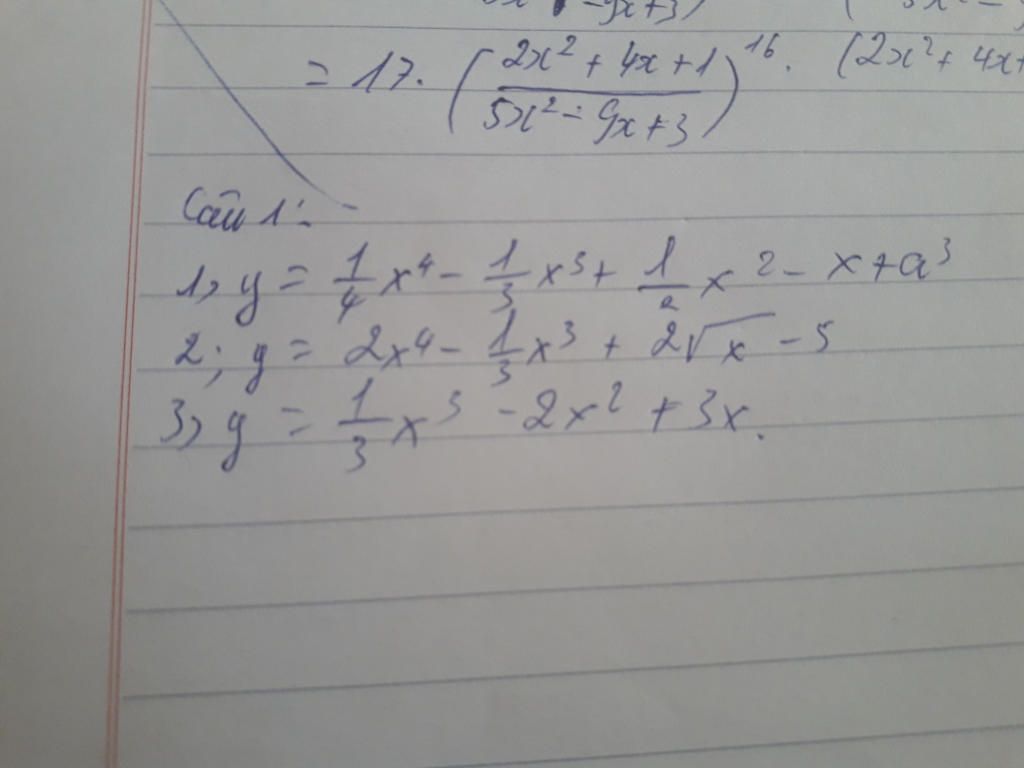 - 9x + 3)
= 17. (2x² + 4x + 1 / 5x² - 9x + 3)¹⁶. (2x² + 4x +
Câu 1:
1, y = 1/4 x⁴ - 1/3 x³ + 1/2 x² - x + a³
2; y = 2x⁴ - 1/3 x³ + 2√x - 5
3, y = 1/3 x³ - 2x² + 3x.